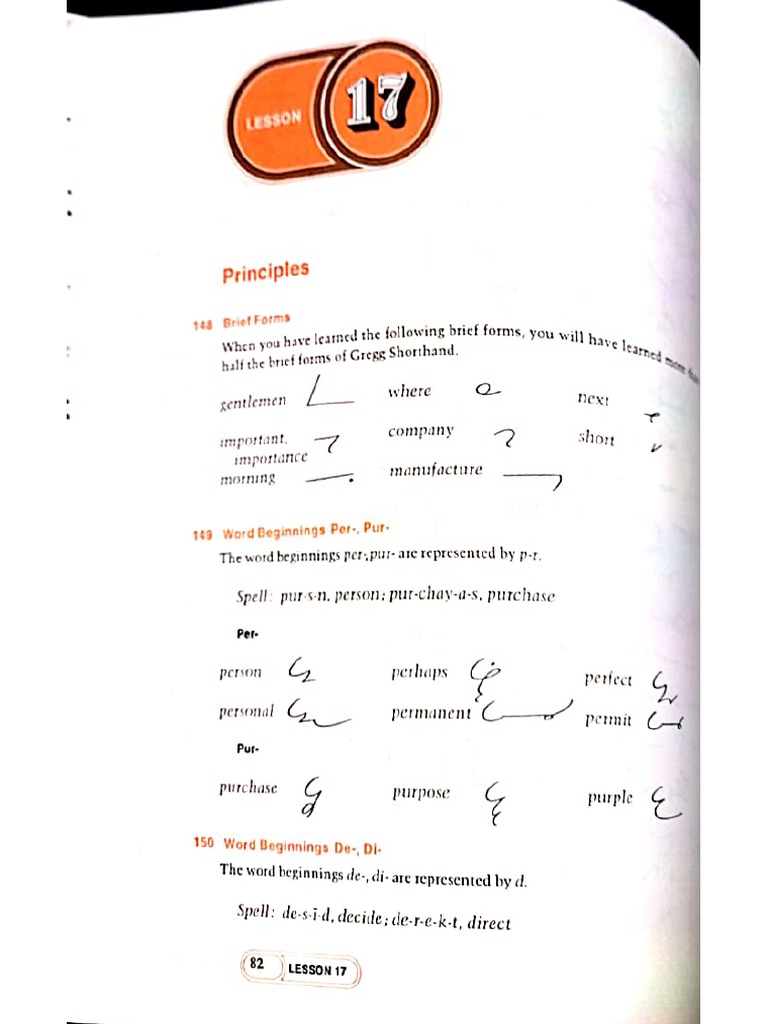 LESSON 17
Principles
148 Brief Forms
When you have learned the following brief forms, you will have learned more than
half the brief forms of Gregg Shorthand.
gentlemen where next
important, company short
importance
morning manufacture
149 Word Beginnings Per-, Pur-
The word beginnings per-, pur- are represented by p-r.
Spell: pur-s-n, person; pur-chay-a-s, purchase
Per-
person perhaps perfect
personal permanent permit
Pur-
purchase purpose purple
150 Word Beginnings De-, Di-
The word beginnings de-, di- are represented by d.
Spell: de-s-ī-d, decide; de-r-e-k-t, direct
82 LESSON 17